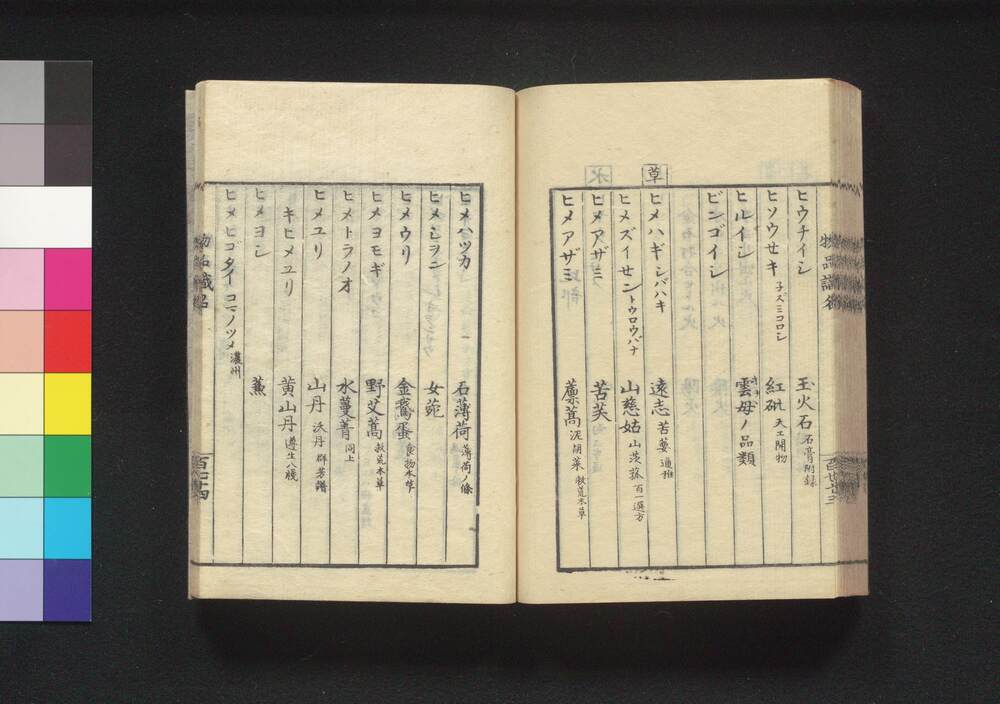 ヒウチイシ 玉火石 石膏附録
ヒソウセキ 子ズミコロシ 紅砒 天工開物
ヒルイシ 雲母ノ品類
ビンゴイシ
草
ヒメハギ シバハキ 遠志 苦葽 通雅
ヒメズイセン トウロウバナ 山慈姑 山茨菰 百一選方
ヒメアザミ 苦芙
ヒメアザミ 藨蒿 泥胡菜 救荒本草
物品識名
ヒメハツカ 石薄荷 薄荷ノ條
ヒメシヲン 女菀
ヒメウリ 金鵞蛋 食物本草
ヒメヨモギ 野艾蒿 救荒本草
ヒメトラノオ 水蔓菁 同上
ヒメユリ 山丹 渥丹 群芳譜
キヒメユリ 黄山丹 遵生八牋
ヒメヨシ
ヒメヒゴタイ コマノツメ 濃州
物品識名